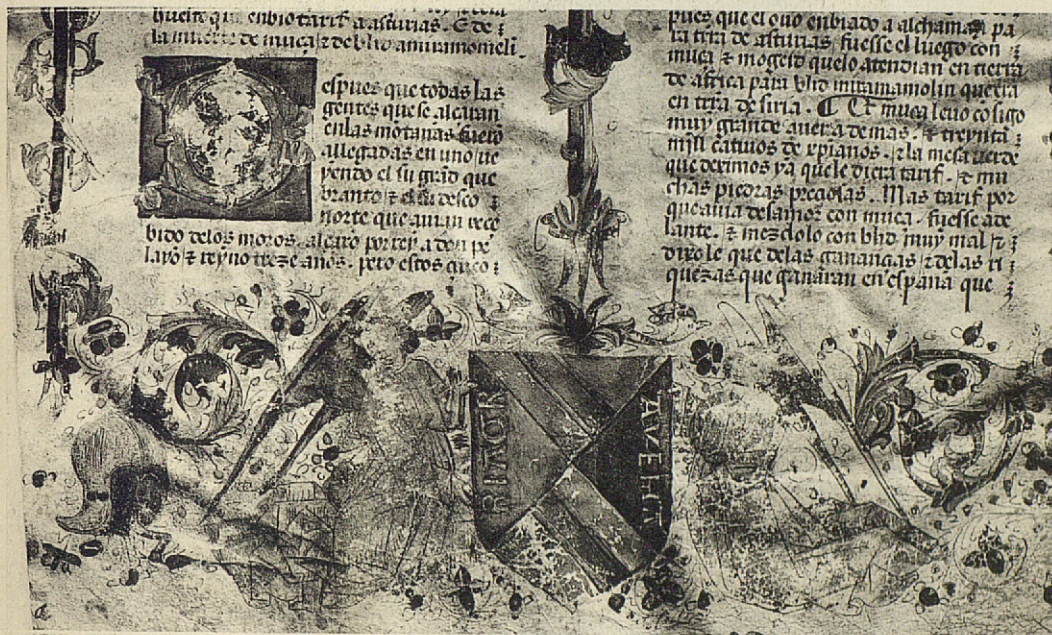 huelte que enbio tarif a asturias. E de
la muerte de muca ⁊ de blid amiramomeli.
espues que todas las
gentes que se alcaran
en las motanas fuero
allegadas en uno ue
yendo el su grad que
branto ⁊ el su desco
norte que auian rece
bido delos moros. alcaro por rey a don pe
layo ⁊ reyno treze anos. pero estos
pues que el ouo enbiado a alchaman pa
ra trra de asturias fuesse el luego con
muca ⁊ mogeid quelo atendian en tierra
de africa para blid miramamolin que era
en trra de siria. muca leuo cosigo
muy grande auer a demas. ⁊ treynta
mill catiuos de xpianos. ⁊ la mesa uerde
que deximos ya quele diera tarif. ⁊ mu
chas piedras preciosas. Mas tarif por
que auia delamor con muca. fuesse ade
lante. ⁊ mezclolo con blid muy mal ⁊
dixo le que delas ganancias ⁊ delas ri
quezas que ganaran en espana que